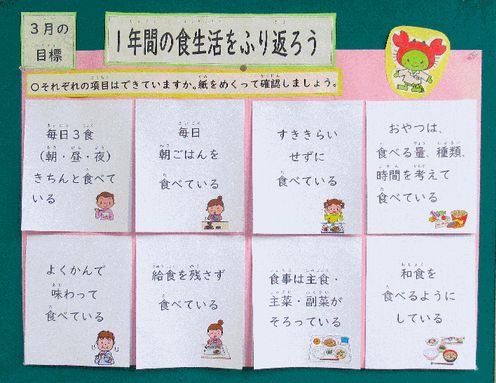 3月の
目標
1年間の食生活をふり返ろう
○それぞれの項目はできていますか。紙をめくって確認しましょう。
毎日3食
(朝・昼・夜)
きちんと食べて
いる
毎日
朝ごはんを
食べている
すききらい
せずに
食べている
おやつは、
食べる量、種類、
時間を考えて
食べている
よくかんで
味わって
食べている
給食を残さず
食べている
食事は主食・
主菜・副菜が
そろっている
和食を
食べるように
している